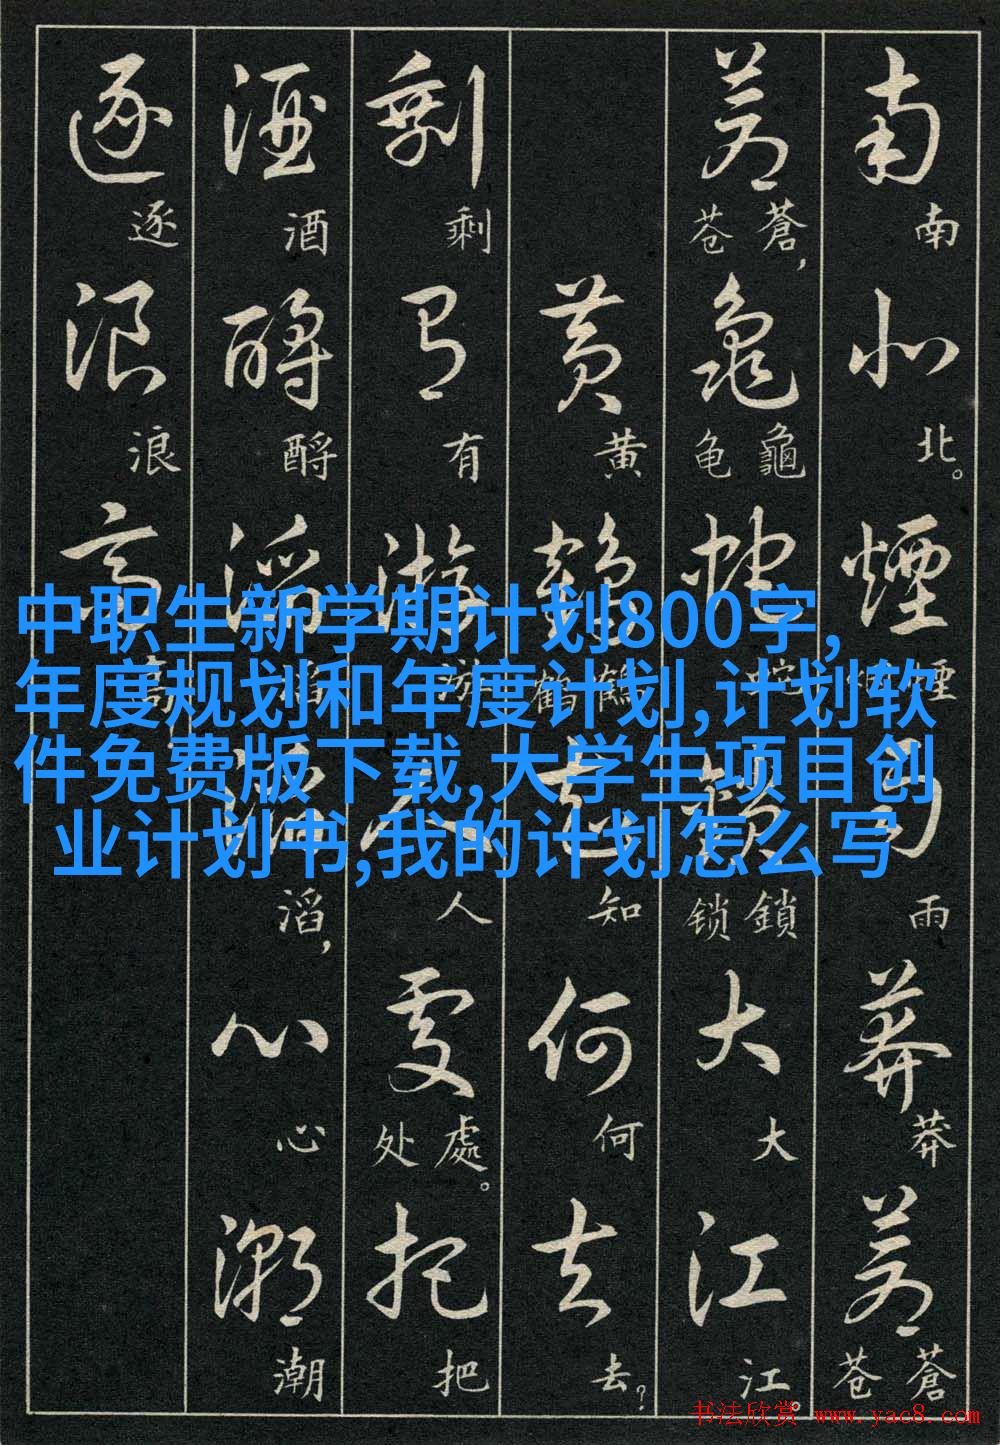 中职生新学期计划800字,
年度规划和年度计划,计划软
件免费版下载,大学生项目创
业计划书,我的计划怎么写
南北煙雨莽蒼
南 北。 煙 雨 莽 蒼苍
蒼龜蛇鎖大江
蒼,苍 龜龟 蛇 鎖锁 大 江。
黄鶴知何去
黄 鶴鹤 知 何 去?
剩有游人處把
剩 有 游 人 處。处 把
酒酹滔滔心潮
酒 酹 滔 滔, 心 潮
逐浪高
逐 浪 高
书法欣赏 www.yac8.com